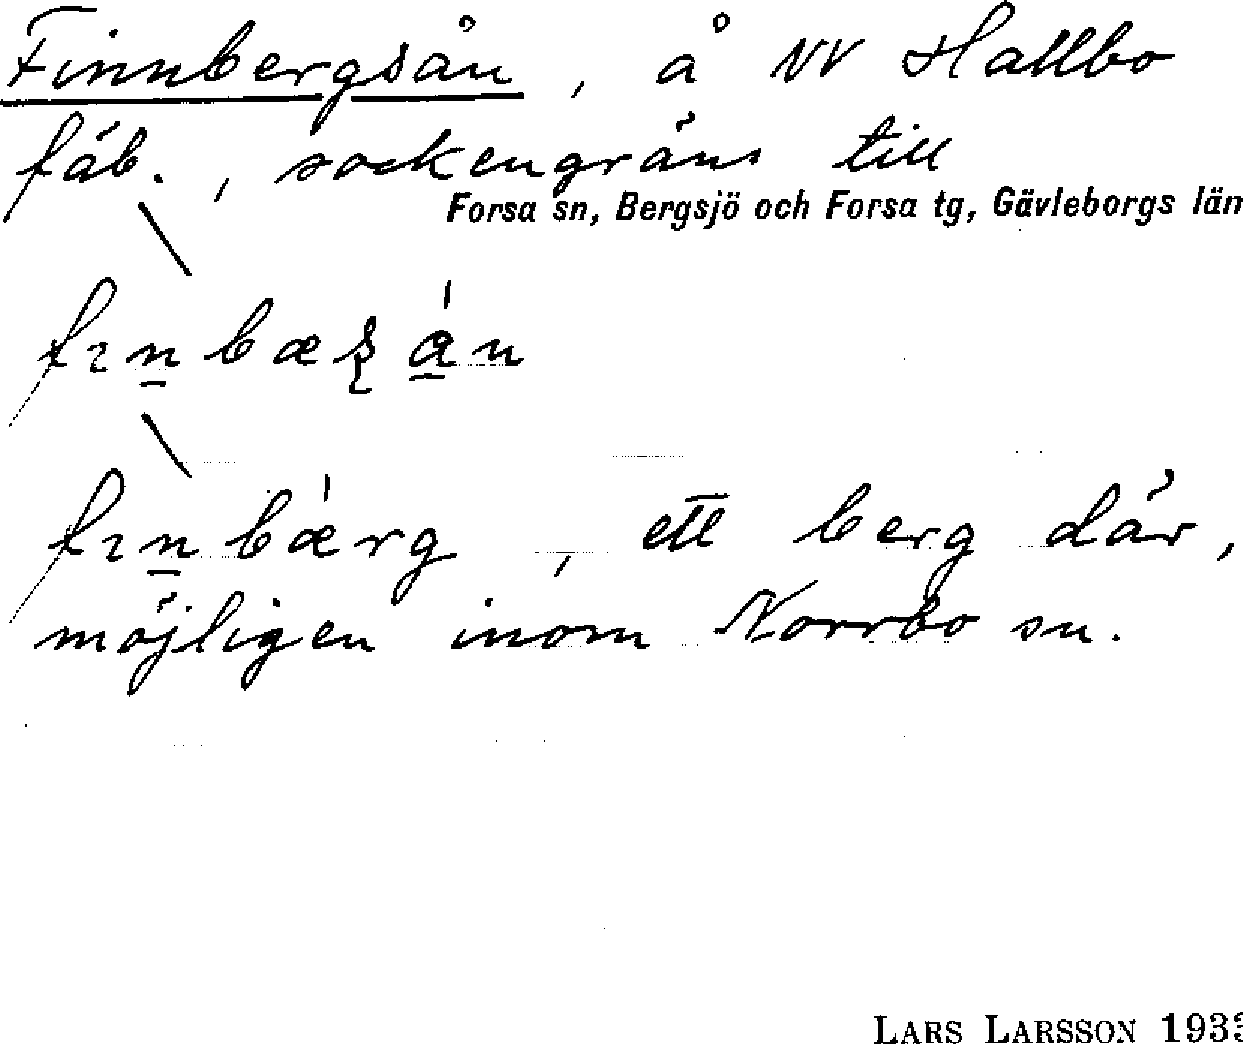 Finnbergsån, å NV Hallbo
fäb., sockengräns till
Forsa sn, Bergsjö och Forsa tg, Gävleborgs län
ett berg där,
möjligen inom Norrbo sn.
LARS LARSSON